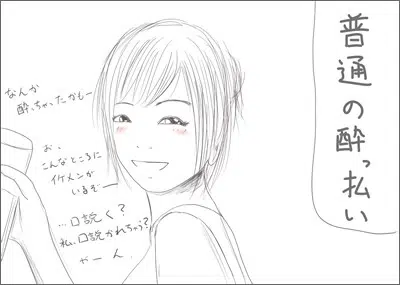 普通の酔っ払い
なんか
酔っちゃったかもー
お。
こんなところに
イケメンが
いるぞー
…口説く?
私、口説かれちゃう?
やーん